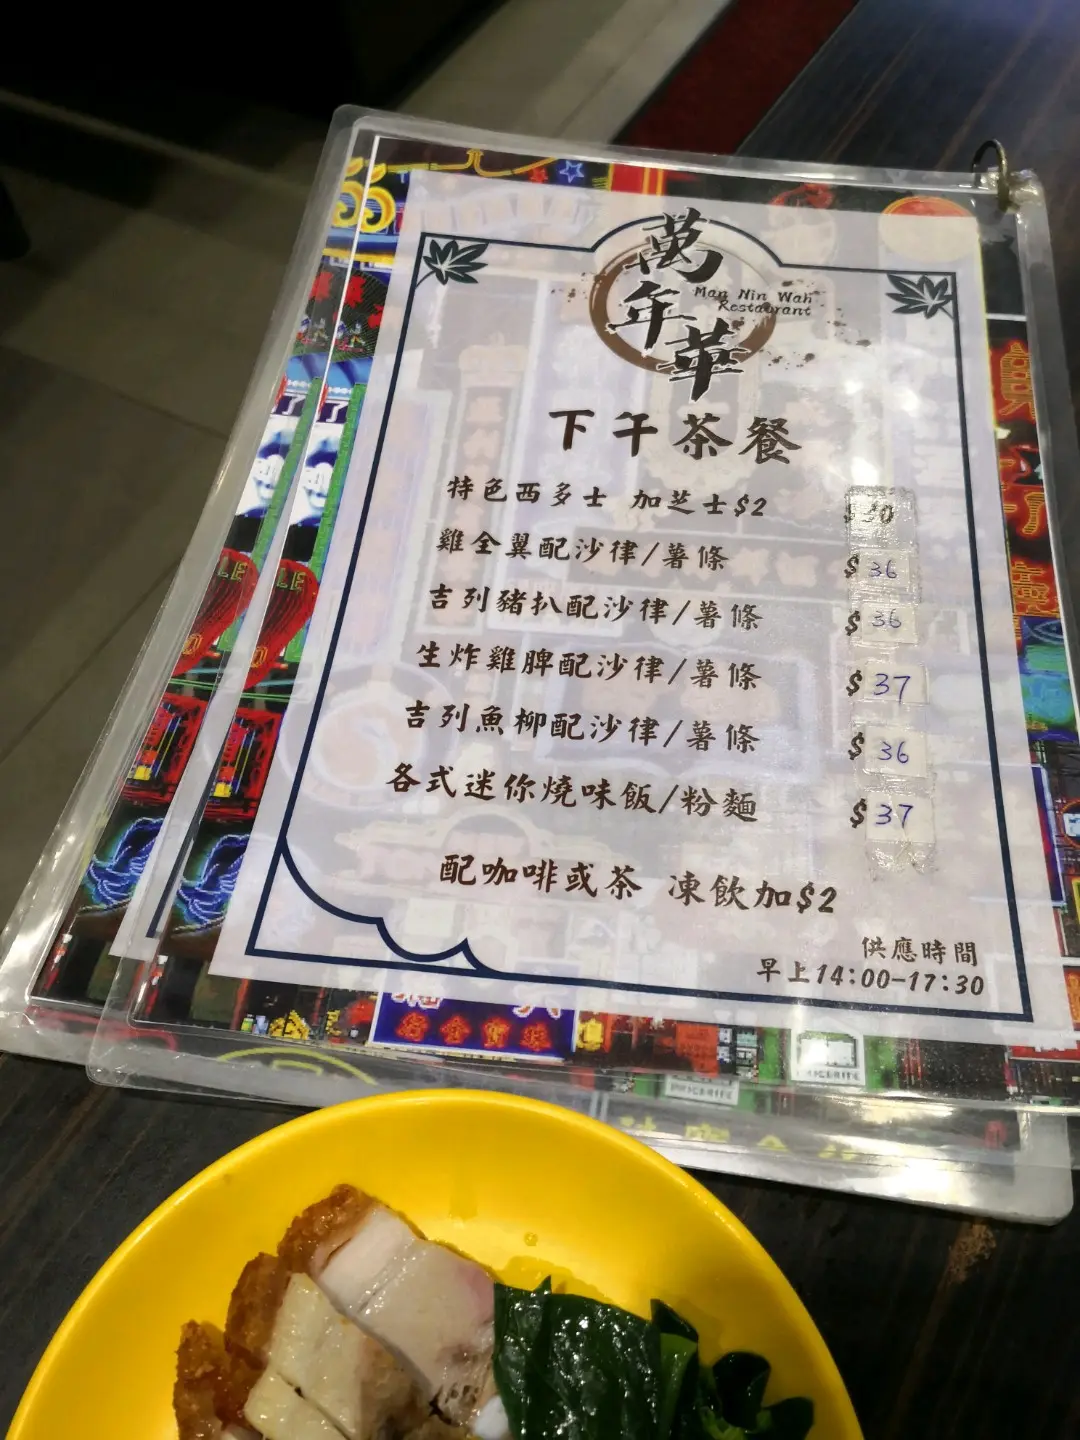 萬年華
Man Nin Wah
Restaurant
下午茶餐
特色西多士 加芝士$2 $30
雞全翼配沙律/薯條 $36
吉列豬扒配沙律/薯條 $36
生炸雞脾配沙律/薯條 $37
吉列魚柳配沙律/薯條 $36
各式迷你燒味飯/粉麵 $37
配咖啡或茶 凍飲加$2
供應時間
早上14:00-17:30